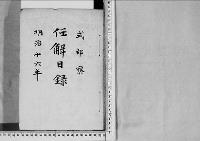 式部寮
任解日録
明治十六年